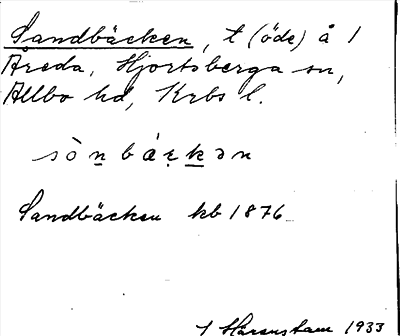 Sandbäcken, t (öde) å 1
Åreda, Hjortsberga sn,
Allbo hd, Krbs l.
sòn bák̠ən
Sandbäcken kb 1876
J Hårenstam 1933